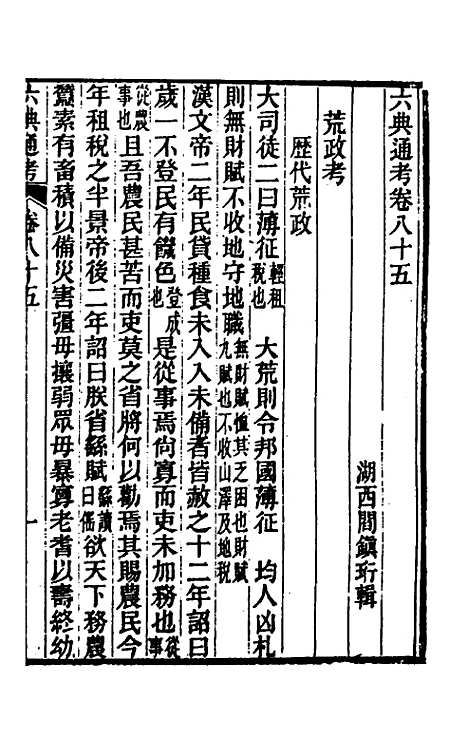 六典通考卷八十五
湖西閻鎮珩輯
荒政考
歴代荒政
大司徒二曰薄征輕租稅也 大荒則令邦國薄征 均人凶札
則無財賦不收地守地職無財賦恤其乏困也財賦九賦也不收山澤及地稅
漢文帝二年民貸種食未入入未備者皆赦之十二年詔曰
歲一不登民有饑色登成也是從事焉尚寡而吏未加務也從事
從農事也且吾農民甚苦而吏莫之省將何以勸焉其賜農民今
年租稅之半景帝後二年詔曰朕省繇賦繇讀曰傜欲天下務農
蠶素有畜積以備災害彊毋攘弱眾毋暴寡老耆以壽終幼
六典通考 卷八十五 一